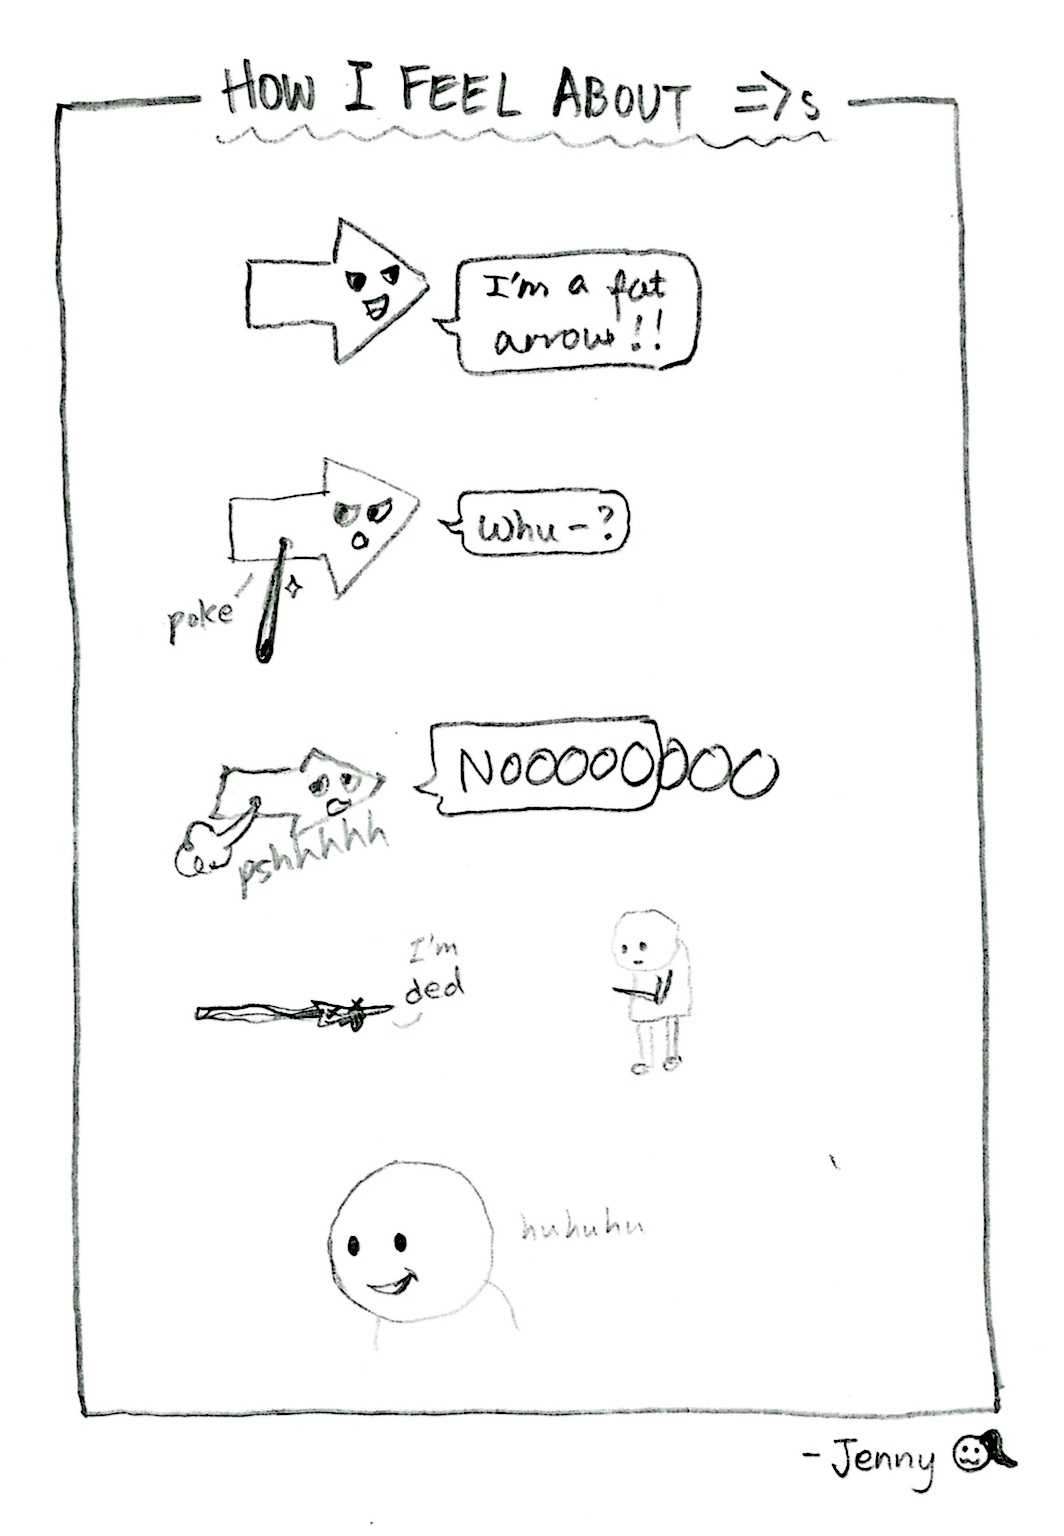 HOW I FEEL ABOUT =>s
I'm a fat
arrow!!
Whu-?
poke
NOOOOOOOO
pshhhhh
I'm
ded
huhuhu
- Jenny